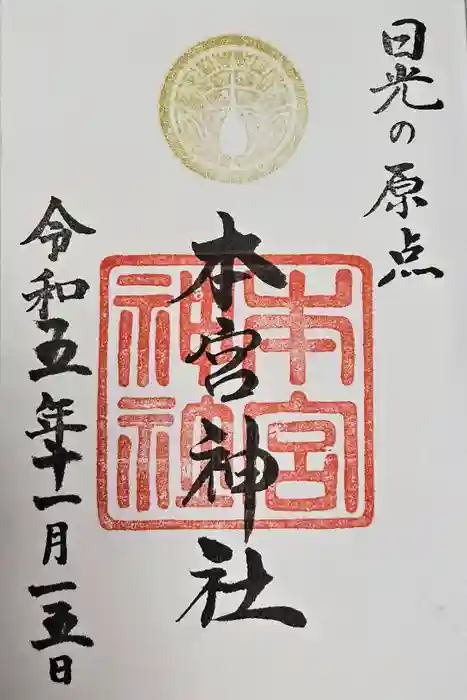 日光の原点
本宮神社
本宮
神社
令和五年十一月一五日